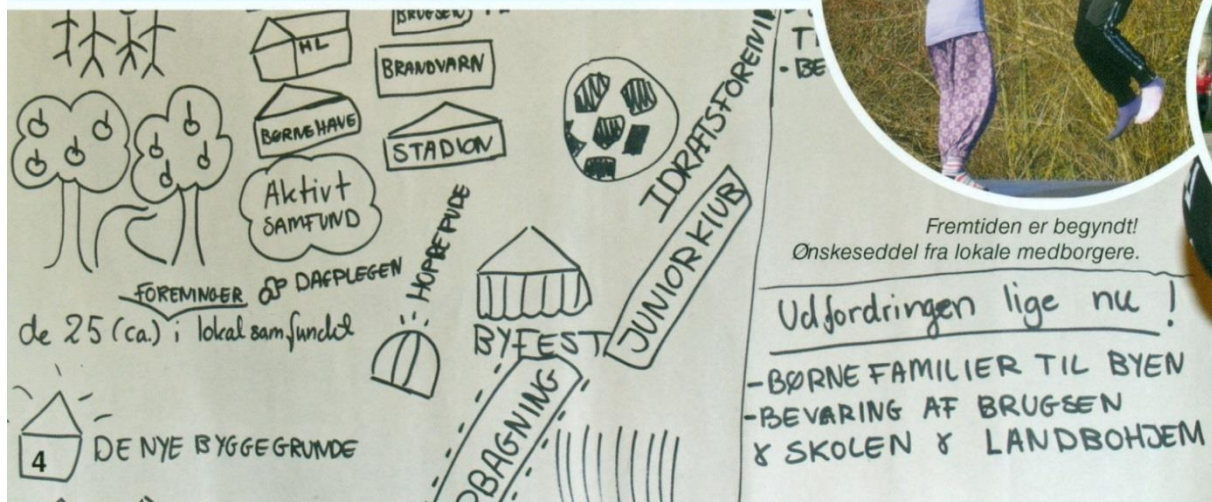 BRUGSEN
HL
BRANDVÆRN
BØRNEHAVE
STADION
Aktivt
SAMFUND
FORENINGER & DAGPLEGEN
de 25 (ca.) i lokalsamfundet
HOPPEPUDE
BYFEST
IDRÆTSFORENIN
JUNIORKLUB
DBAGNING
4
DE NYE BYGGEGRUNDE
BE
Fremtiden er begyndt!
Ønskeseddel fra lokale medborgere.
Udfordringen lige nu!
-BØRNEFAMILIER TIL BYEN
-BEVARING AF BRUGSEN
& SKOLEN & LANDBOHJEM